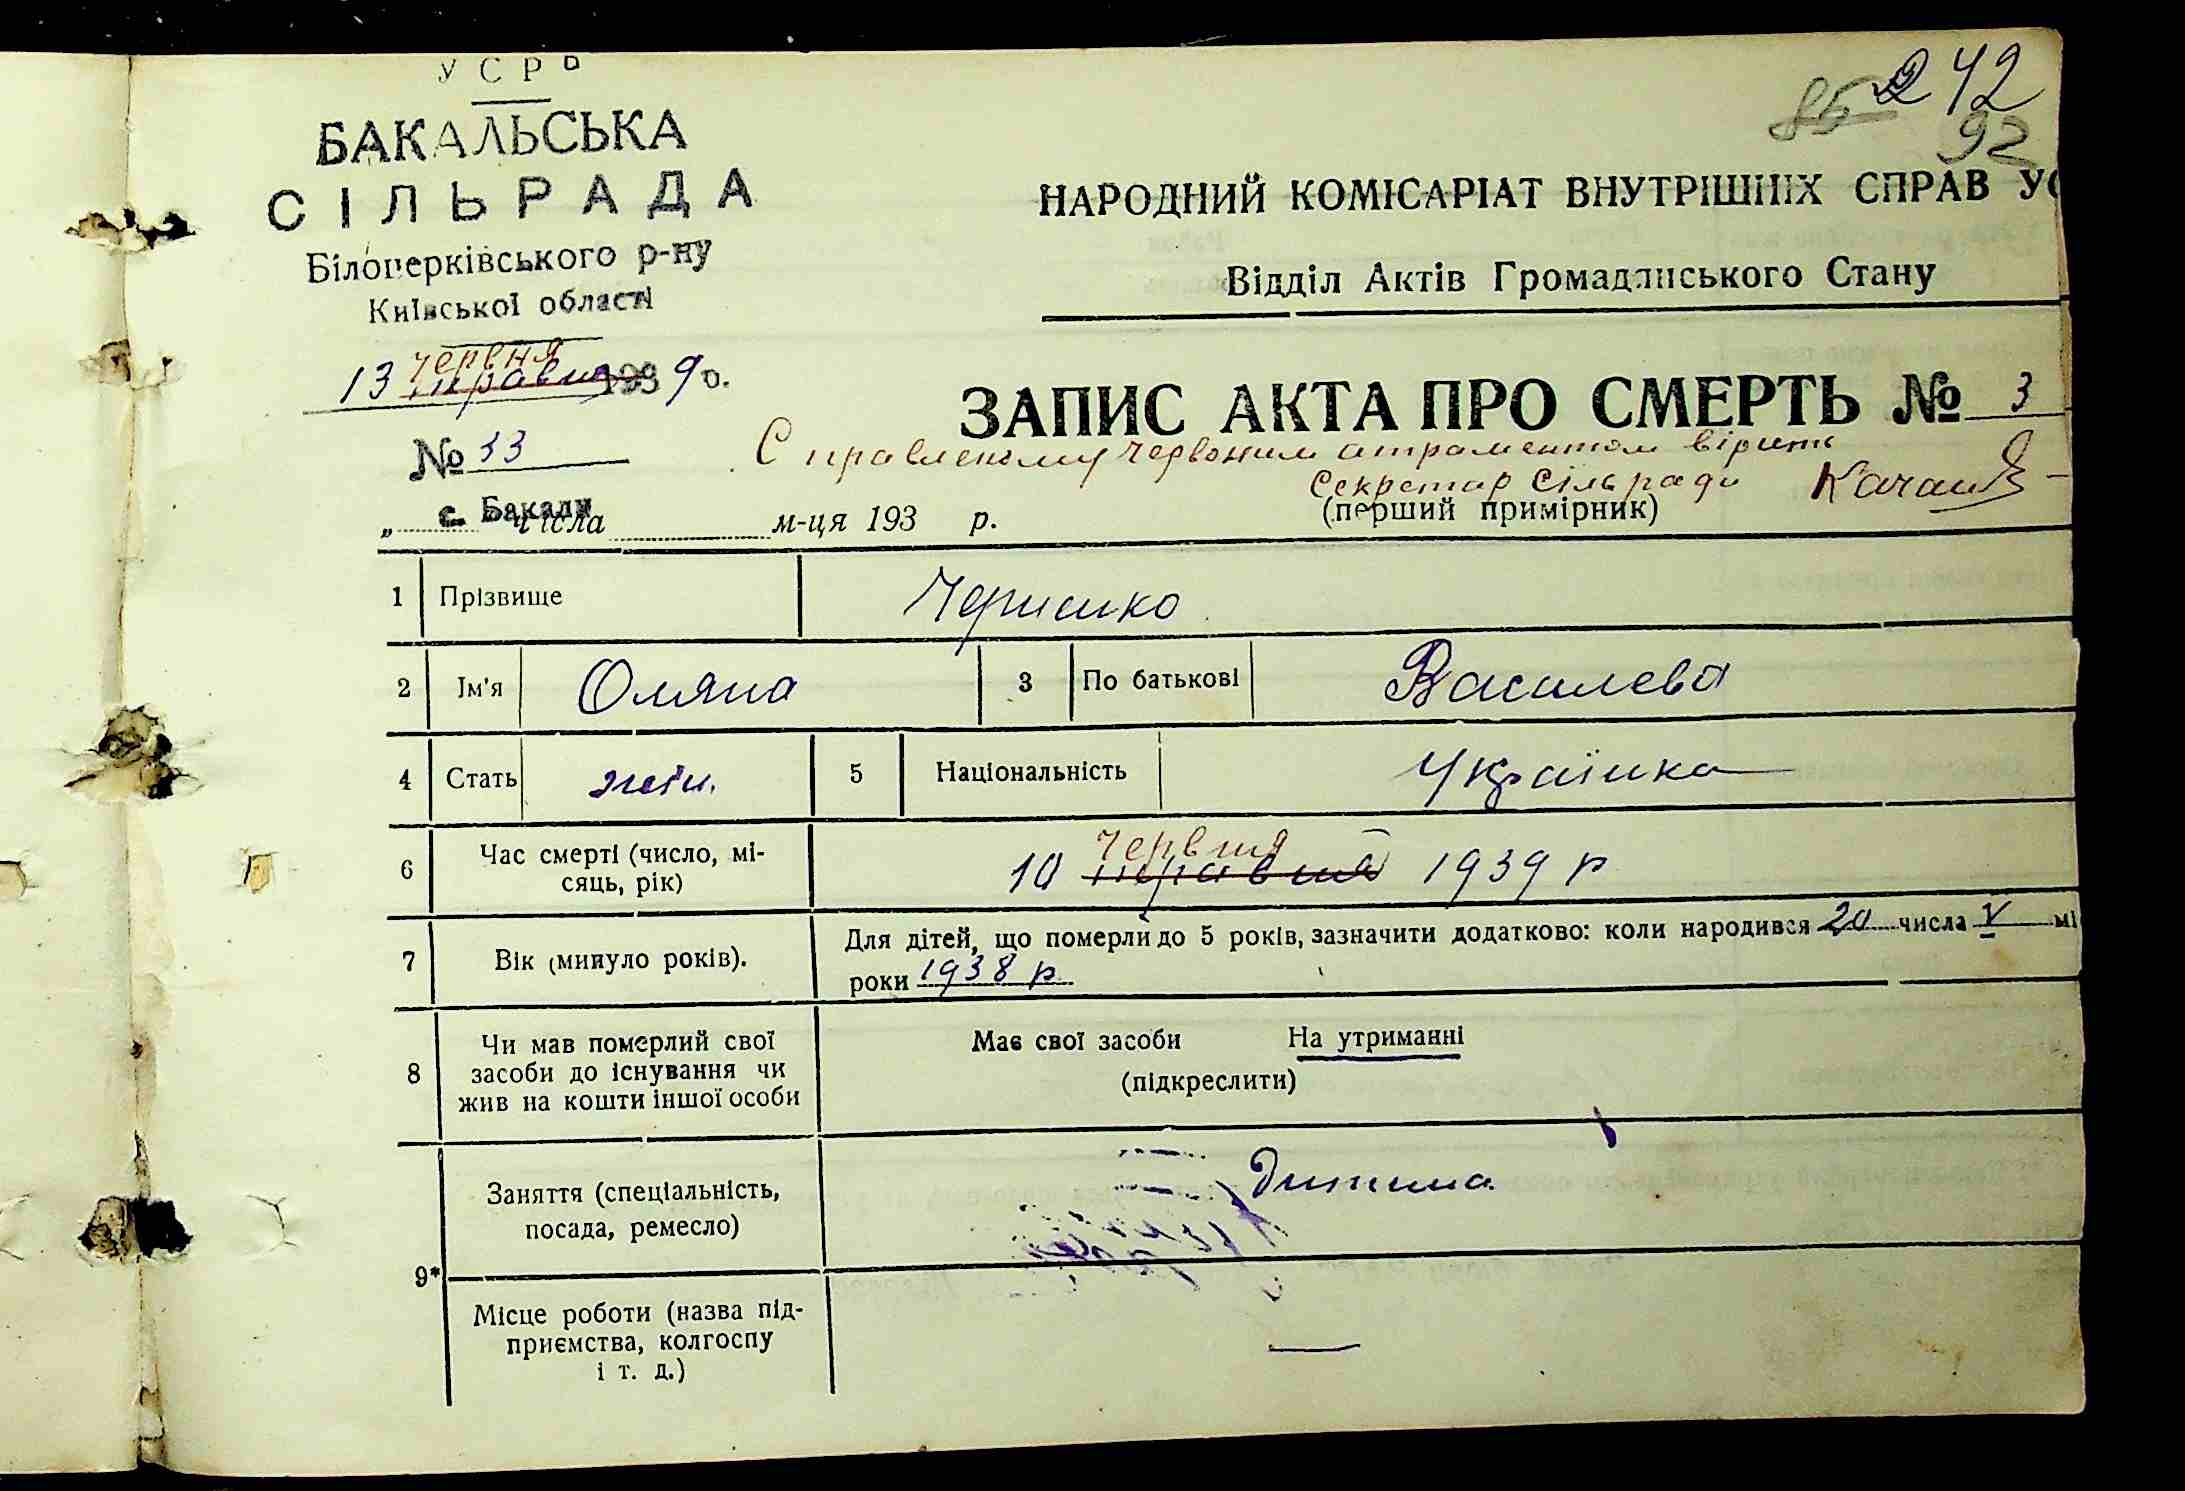 УСРР
БАКАЛЬСЬКА
СІЛЬРАДА
Білоцерківського р-ну
Київської області
червня
13 травня 1939 о.
№ 33
с. Бакали
242
85
92
НАРОДНИЙ КОМІСАРІАТ ВНУТРІШНІХ СПРАВ УС
Відділ Актів Громадянського Стану
ЗАПИС АКТА ПРО СМЕРТЬ № 3
Справленому червоним атраментом вірить
Секретар Сільради
(перший примірник)
„ числа м-ця 193 р.
1 Прізвище
2 Ім'я Оляна 3 По батькові Василева
4 Стать жін. 5 Національність Українка
6 Час смерті (число, мі-
сяць, рік)
червня
10 травня 1939 р
7 Вік (минуло років).
Для дітей, що померли до 5 років, зазначити додатково: коли народився 20 числа V мі
роки 1938 р.
8 Чи мав померлий свої
засоби до існування чи
жив на кошти іншої особи
Має свої засоби На утриманні
(підкреслити)
9*
Заняття (спеціальність,
посада, ремесло)
Дитина
Місце роботи (назва під-
приємства, колгоспу
і т. д.)
—